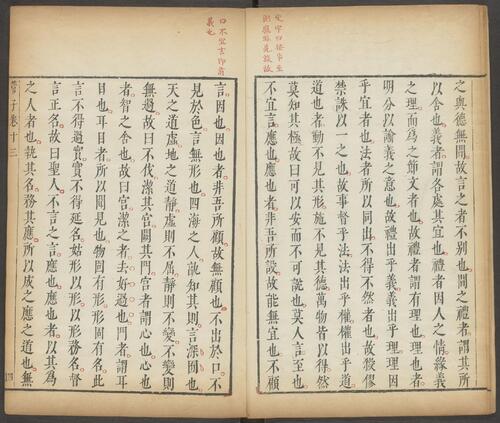 之與德無間故言之者不別也間之禮者謂其所
以舍也義者謂各處其宜也禮者因人之情緣義
之理而為之節文者也故禮者謂有理也理也者
明分以諭義之意也故禮出乎義義出乎理理因
乎宜者也法者所以同出不得不然者也故殺僇
禁誅以一之也故事督乎法法出乎權權出乎道
道也者動不見其形施不見其德萬物皆以得然
莫知其極故曰可以安而不可說也莫人言至也
不宜言應也應也者非吾所設故能無宜也不顧
言因也因也者非吾所顧故無顧也不出於口不
見於色言無形也四海之人孰知其則言深囿也
天之道虛地之道靜虛則不屈靜則不變不變則
無過故曰不伐潔其宮闕其門宮者謂心也心也
者智之舍也故曰宮潔之者去好過也門者謂耳
目也耳目者所以聞見也物固有形形固有名此
言不得過實實不得延名姑形以形以形務名督
言正名故曰聖人不言之言應也應也者以其為
之人者也執其名務其應所以成之應之道也無
管子卷十三
口不宜言
義也